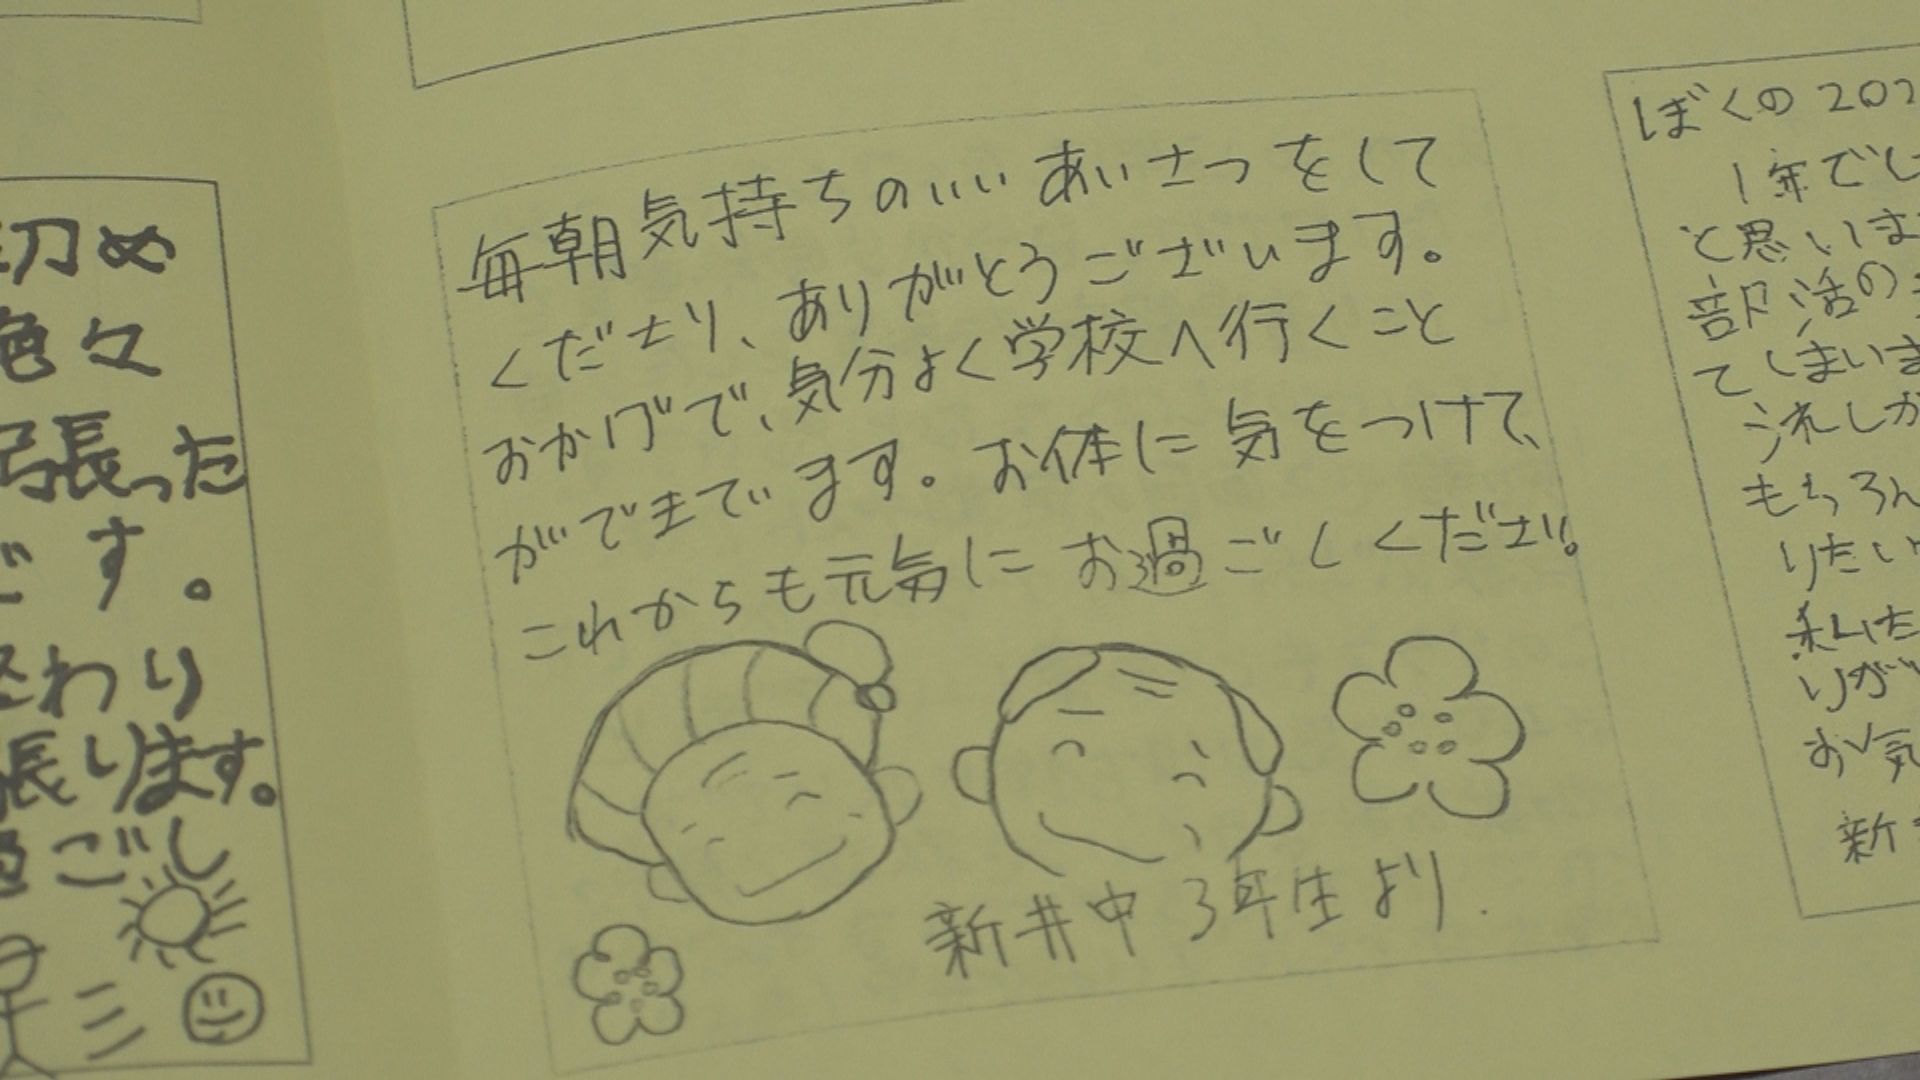 刀め
色々
張った
す。
終わり
張ります。
過ごし
毎朝気持ちのいいあいさつをして
くださり、ありがとうございます。
おかげで、気分よく学校へ行くこと
ができています。お体に気をつけて、
これからも元気にお過ごしください。
新井中3年生より.
ぼくの202
1年でし
と思いま
部活の
てしまいま
もちろん
りたい
私た
りが
お気
新